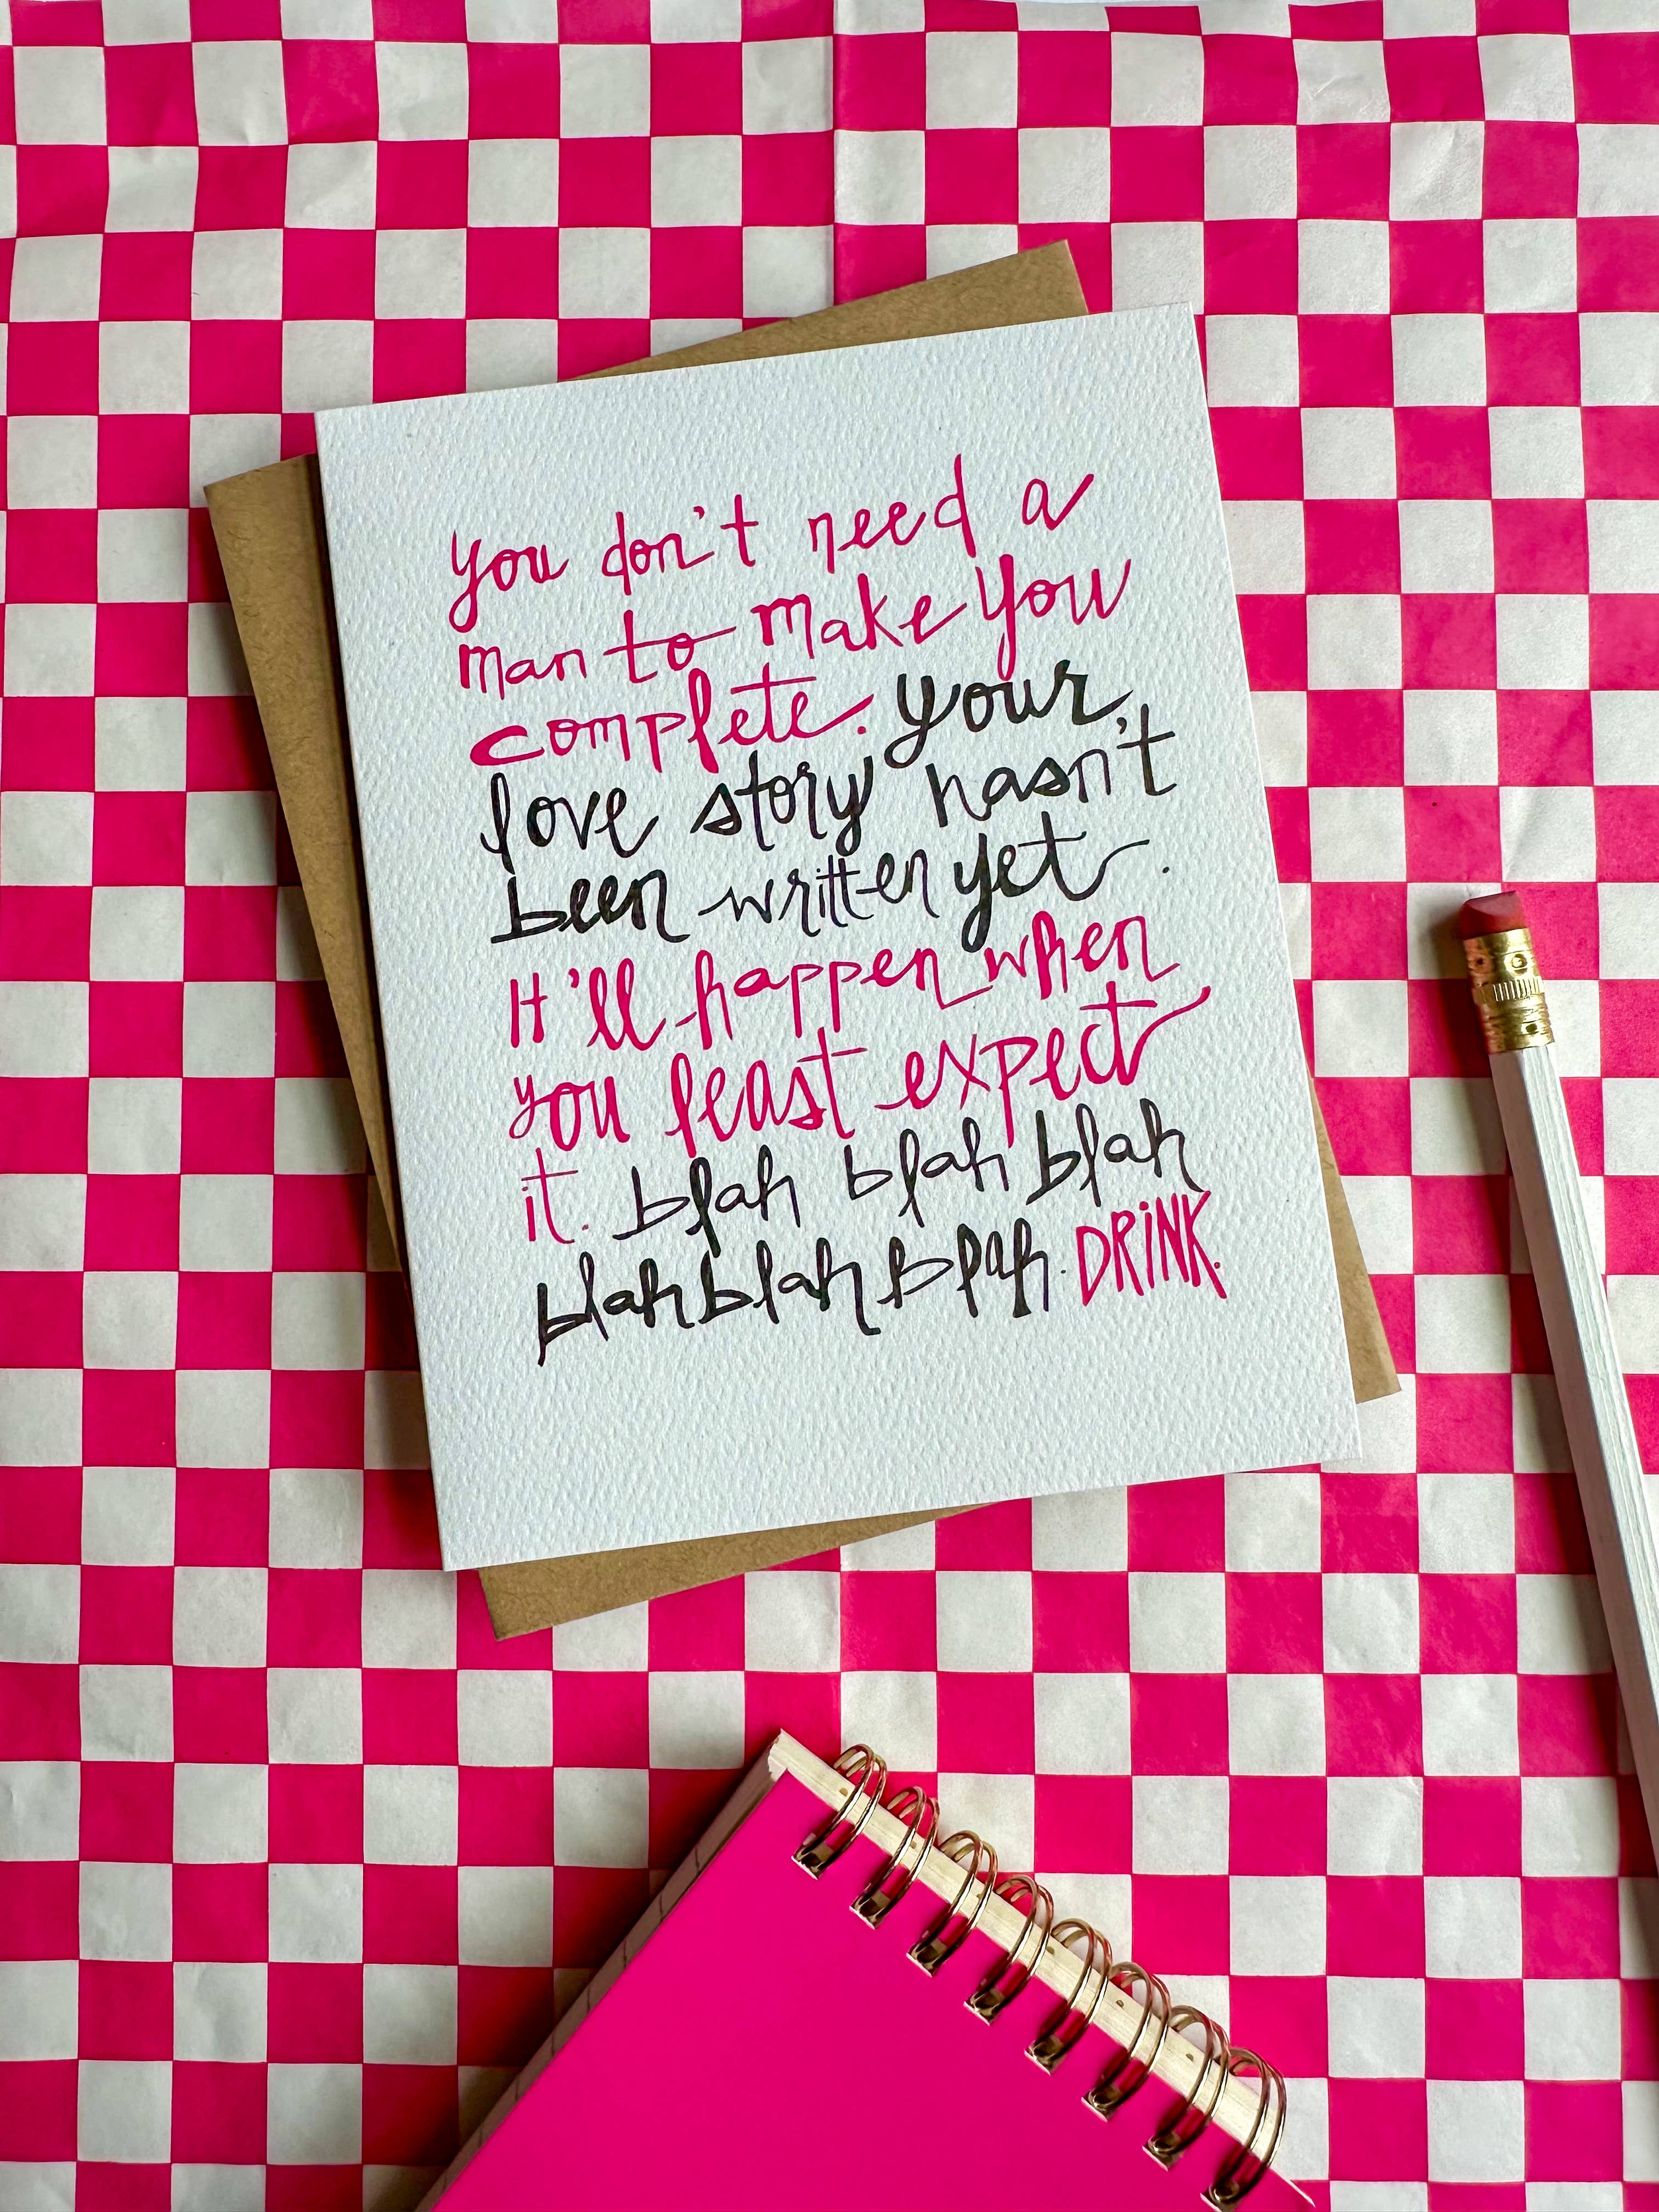 you don't need a
man to make you
complete. your
love story hasn't
been written yet.
It'll happen when
you least expect
it. blah blah blah
blah blah blah. DRINK.